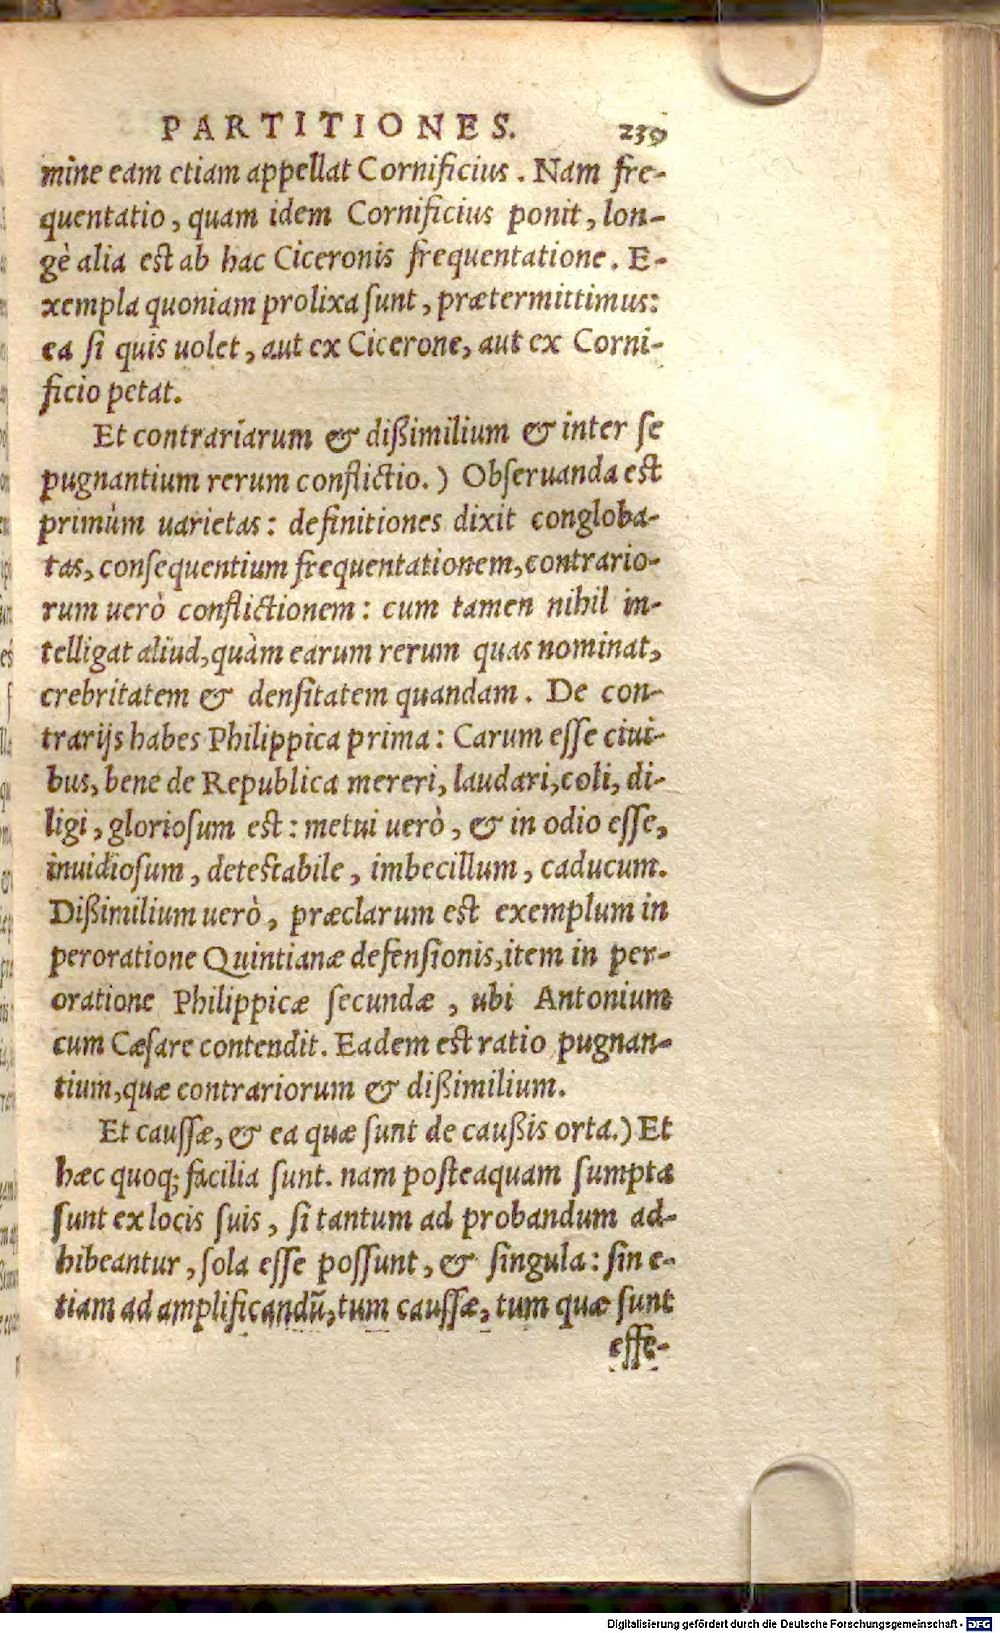 PARTITIONES. 239
mine eam etiam appellat Cornificius. Nam fre-
quentatio, quam idem Cornificius ponit, lon-
gè alia est ab hac Ciceronis frequentatione. E-
xempla quoniam prolixa ſunt, prætermittimus:
ea ſi quis uolet, aut ex Cicerone, aut ex Corni-
ficio petat.
Et contrariarum & dißimilium & inter ſe
pugnantium rerum conflictio.) Obſeruanda est
primùm uarietas: definitiones dixit congloba-
tas, conſequentium frequentationem, contrario-
rum uerò conflictionem: cum tamen nihil in-
telligat aliud, quàm earum rerum quas nominat,
crebritatem & denſitatem quandam. De con-
trarijs habes Philippica prima: Carum eſſe ciui-
bus, bene de Republica mereri, laudari, coli, di-
ligi, glorioſum est: metui uerò, & in odio eſſe,
inuidioſum, detestabile, imbecillum, caducum.
Dißimilium uerò, præclarum est exemplum in
peroratione Quintianæ defenſionis, item in per-
oratione Philippicæ ſecundæ, ubi Antonium
cum Cæſare contendit. Eadem est ratio pugnan-
tium, quæ contrariorum & dißimilium.
Et cauſſæ, & ea quæ ſunt de caußis orta.) Et
hæc quoq; facilia ſunt. nam posteaquam ſumpta
ſunt ex locis ſuis, ſi tantum ad probandum ad-
hibeantur, ſola eſſe poſſunt, & ſingula: ſin e-
tiam ad amplificandū, tum cauſſæ, tum quæ ſunt
effe-
Digitalisierung gefördert durch die Deutsche Forschungsgemeinschaft - DFG